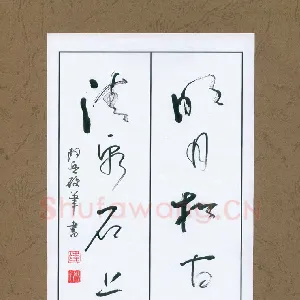 明月松间
清泉石上
Shufawang.CN